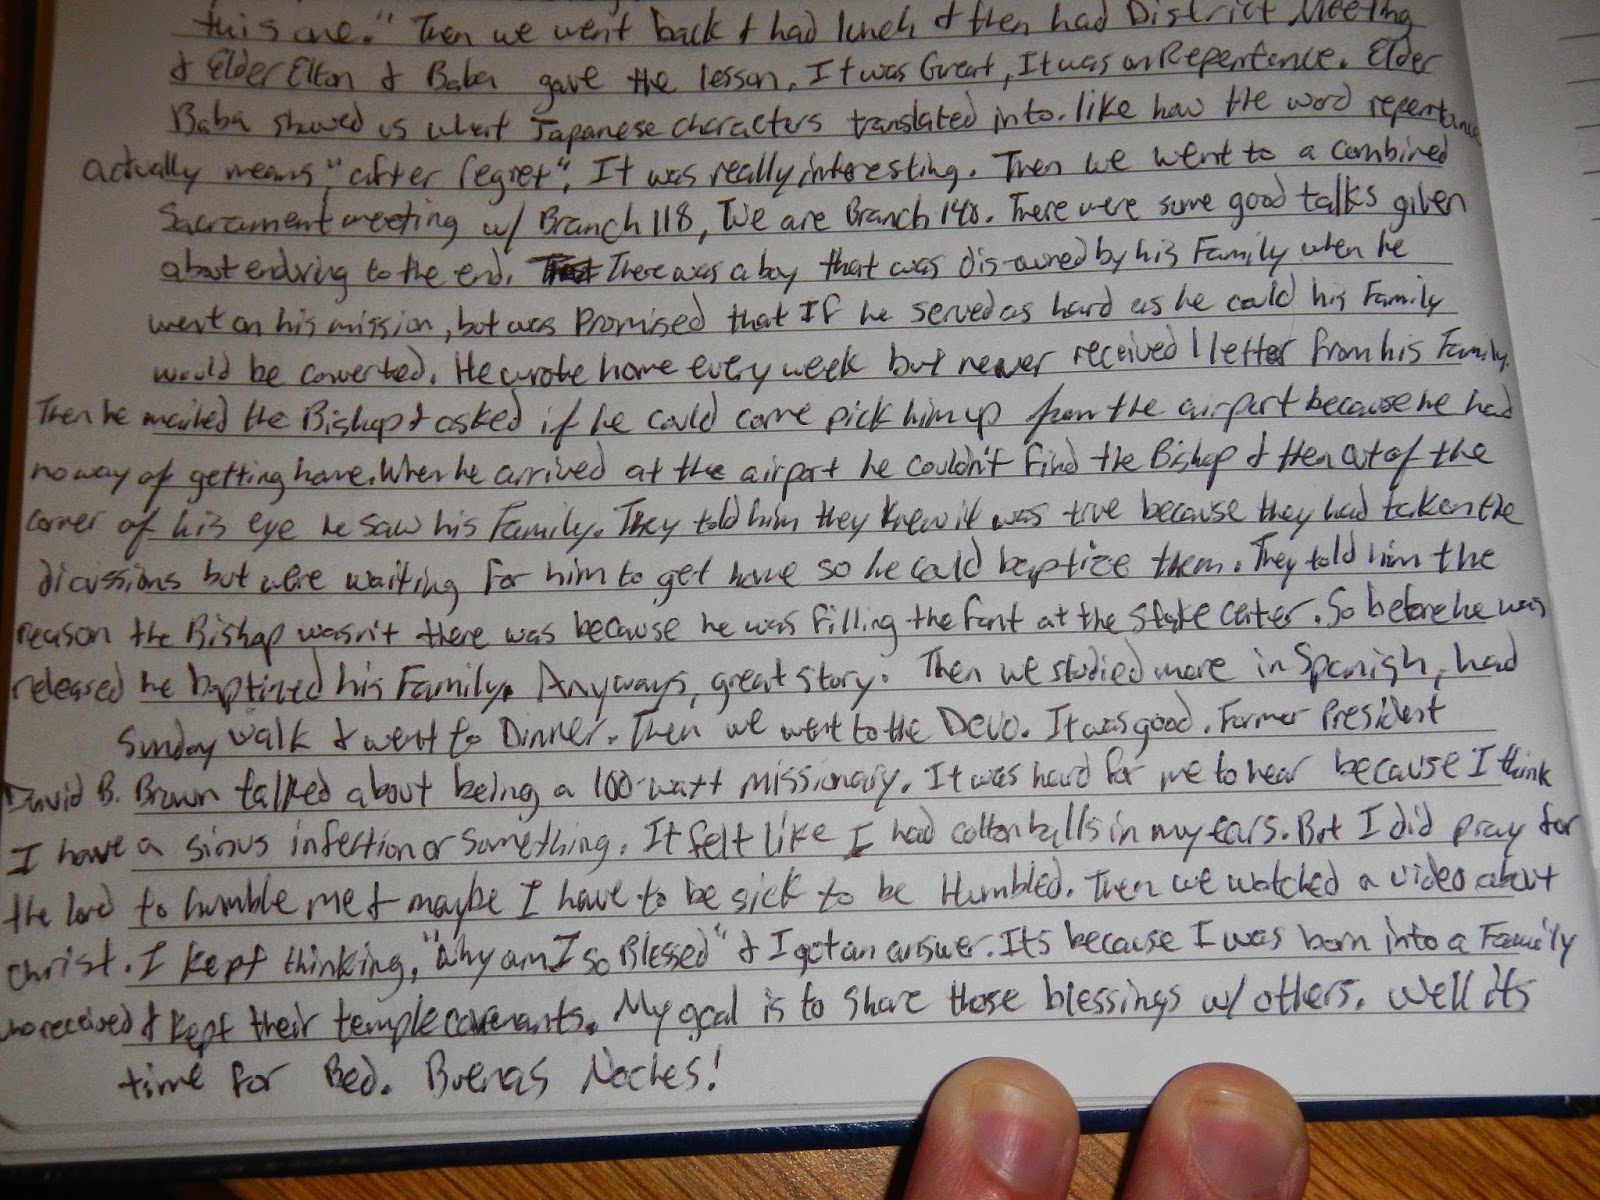 this one." Then we went back & had lunch & then had District Meeting
& Elder Elton & Baba gave the lesson. It was Great, It was on Repentence. Elder
Baba showed us what Japanese characters translated into. like how the word repentance
actually means "after regret". It was really interesting. Then we went to a combined
Sacrament meeting w/ Branch 118, We are Branch 148. There were some good talks given
about enduring to the end. There was a boy that was dis-owned by his Family when he
went on his mission, but was Promised that If he served as hard as he could his Family
would be converted. He wrote home every week but never received 1 letter from his Family.
Then he mailed the Bishop & asked if he could come pick him up from the airport because he had
no way of getting home. When he arrived at the airport he couldn't find the Bishop & then out of the
corner of his eye he saw his Family. They told him they knew it was true because they had taken the
dicussions but were waiting for him to get home so he could baptize them. They told him the
reason the Bishop wasn't there was because he was filling the font at the stake center. So before he was
released he baptized his Family. Anyways, great story. Then we studied more in Spanish, had
Sunday walk & went to Dinner. Then we went to the Devo. It was good. Former President
David B. Brown talked about being a 100-watt missionary. It was hard for me to hear because I think
I have a sinus infection or something. It felt like I had cotton balls in my ears. But I did pray for
the lord to humble me & maybe I have to be sick to be Humbled. Then we watched a video about
christ. I kept thinking, "Why am I so Blessed" & I got an answer. Its because I was born into a Family
who received & kept their temple covenants. My goal is to share those blessings w/ others. Well its
time for Bed. Buenas Noches!